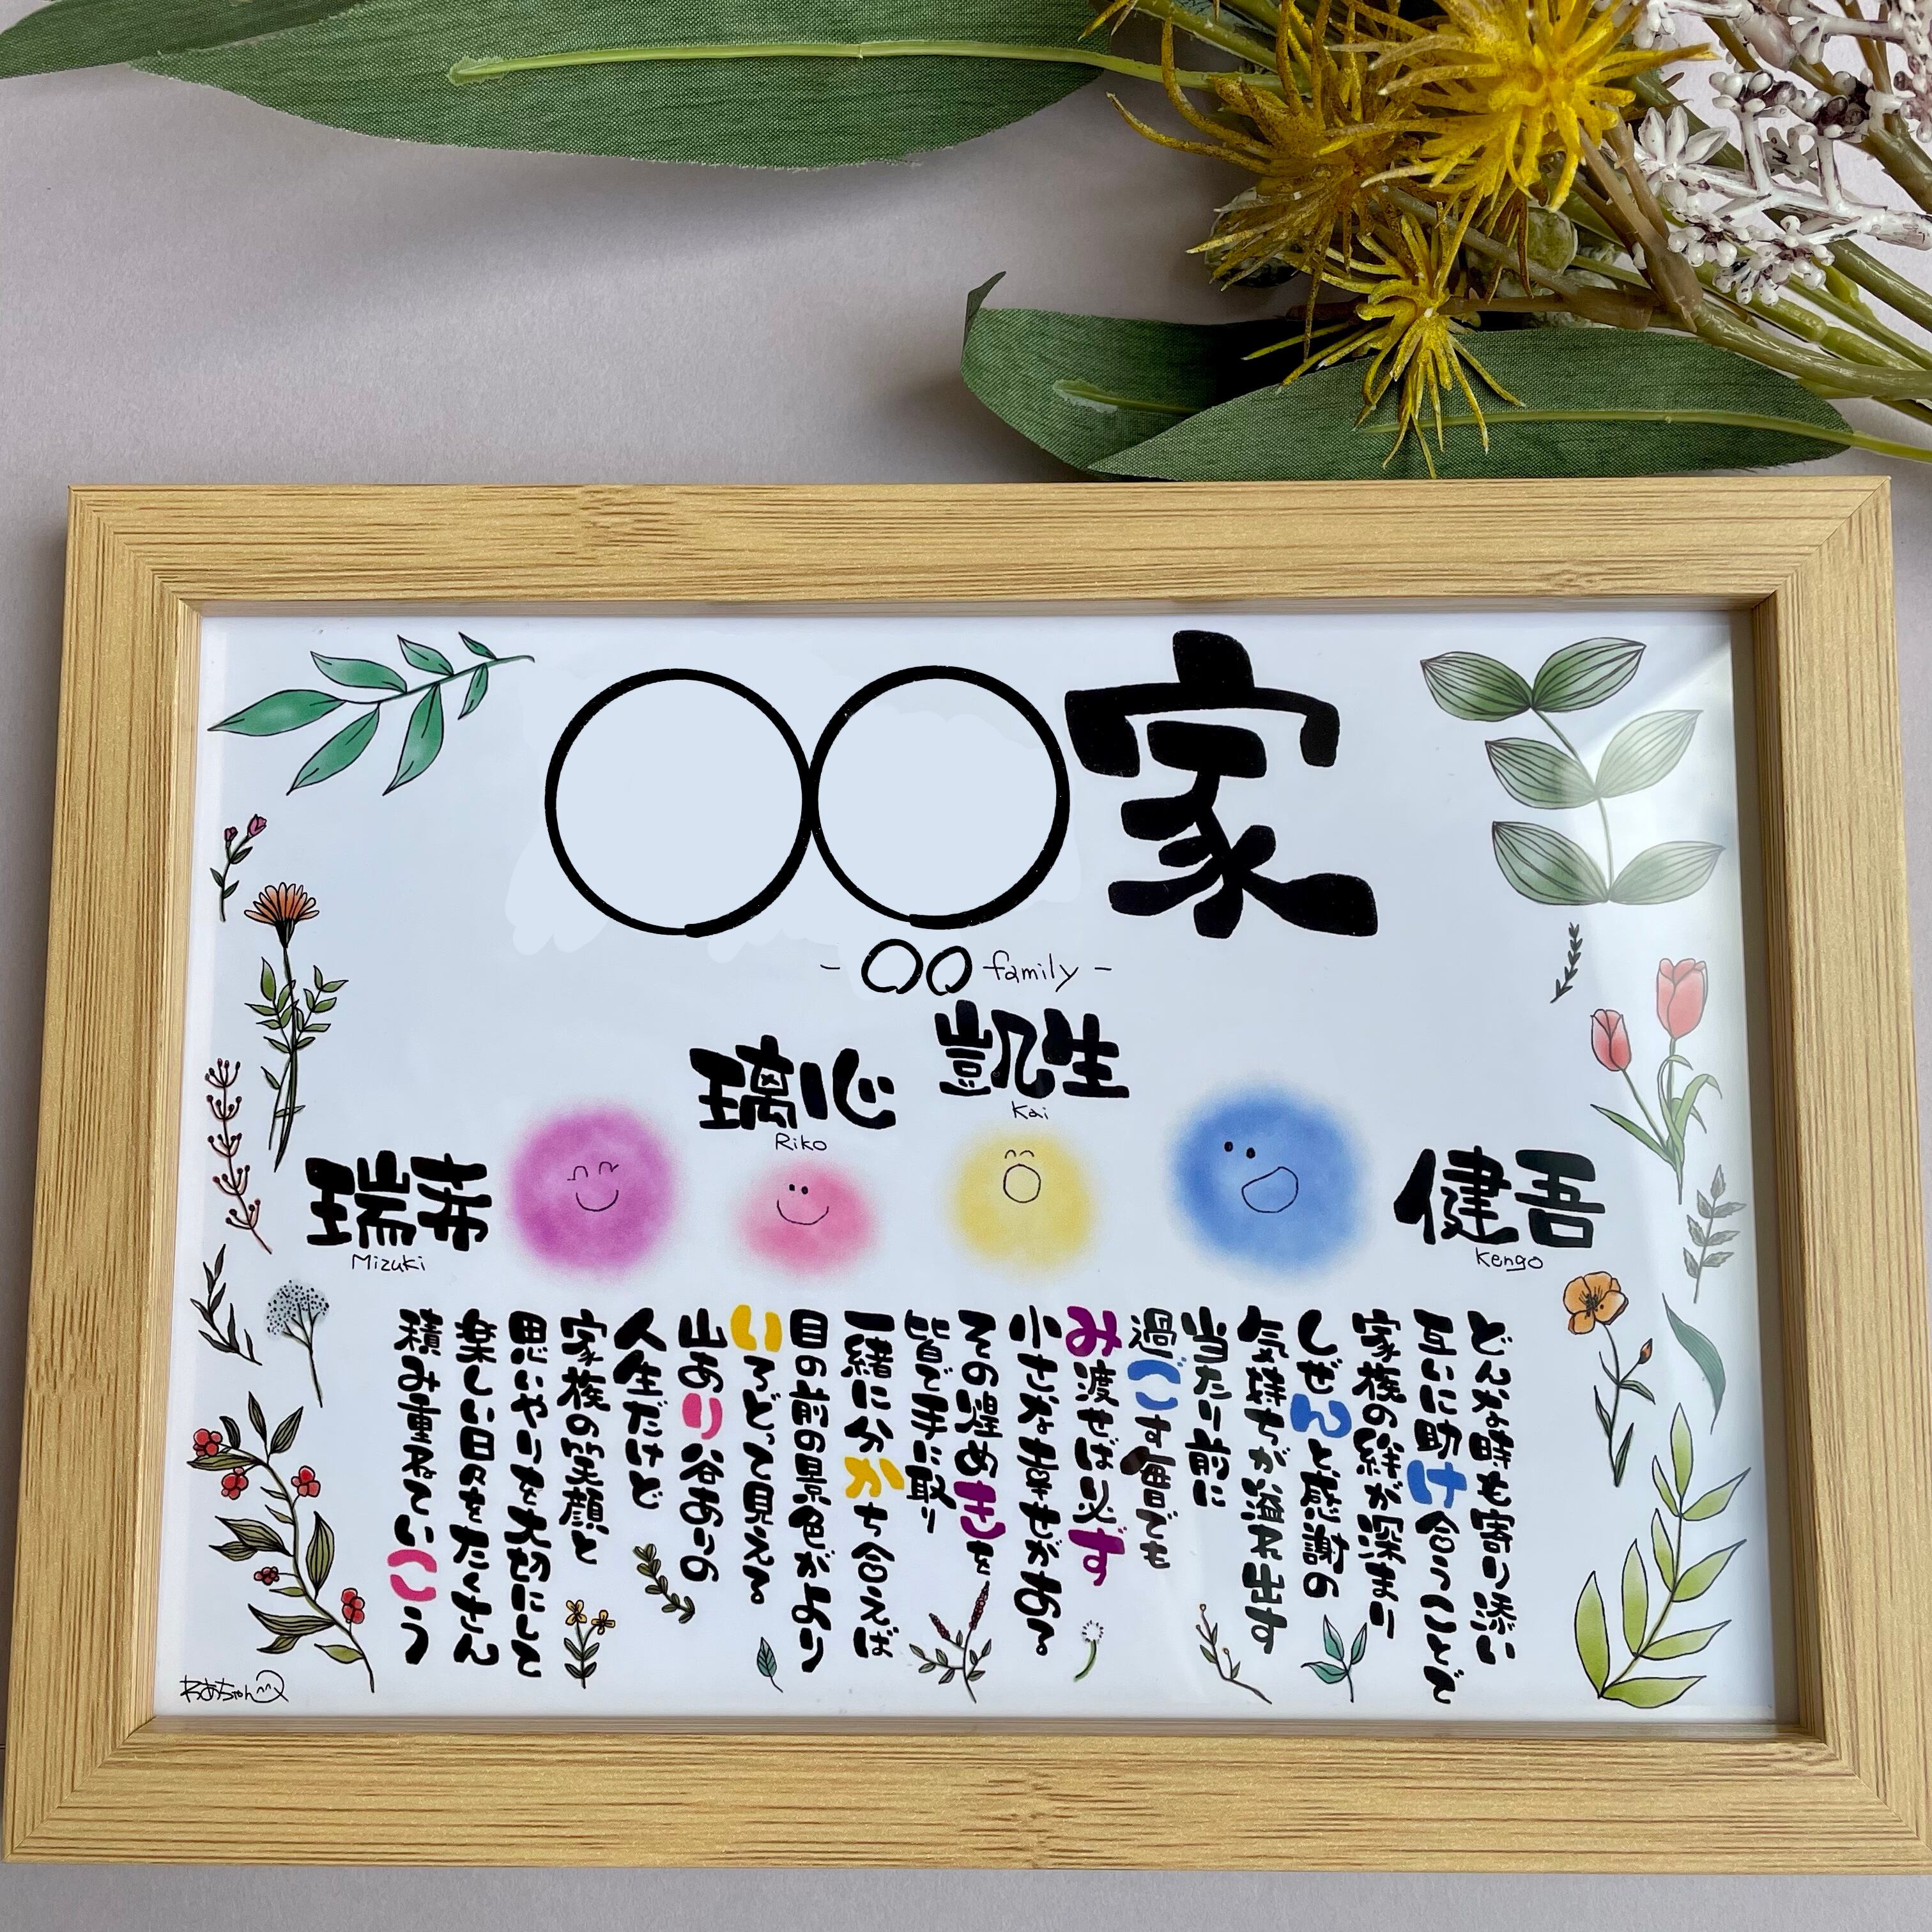 〇〇家
- 〇〇 family -
凱生
Kai
璃心
Riko
瑞希
Mizuki
健吾
Kengo
どんな時も寄り添い
互いに助け合うことで
家族の絆が深まり
しぜんと感謝の
気持ちが溢れ出す
当たり前に
過ごす毎日でも
み渡せば必ず
小さな幸せがある
その煌めきを
皆で手に取り
一緒に分かち合えば
目の前の景色がより
いろどって見える
山あり谷ありの
人生だけど
家族の笑顔と
思いやりを大切にして
楽しい日々をたくさん
積み重ねていこう